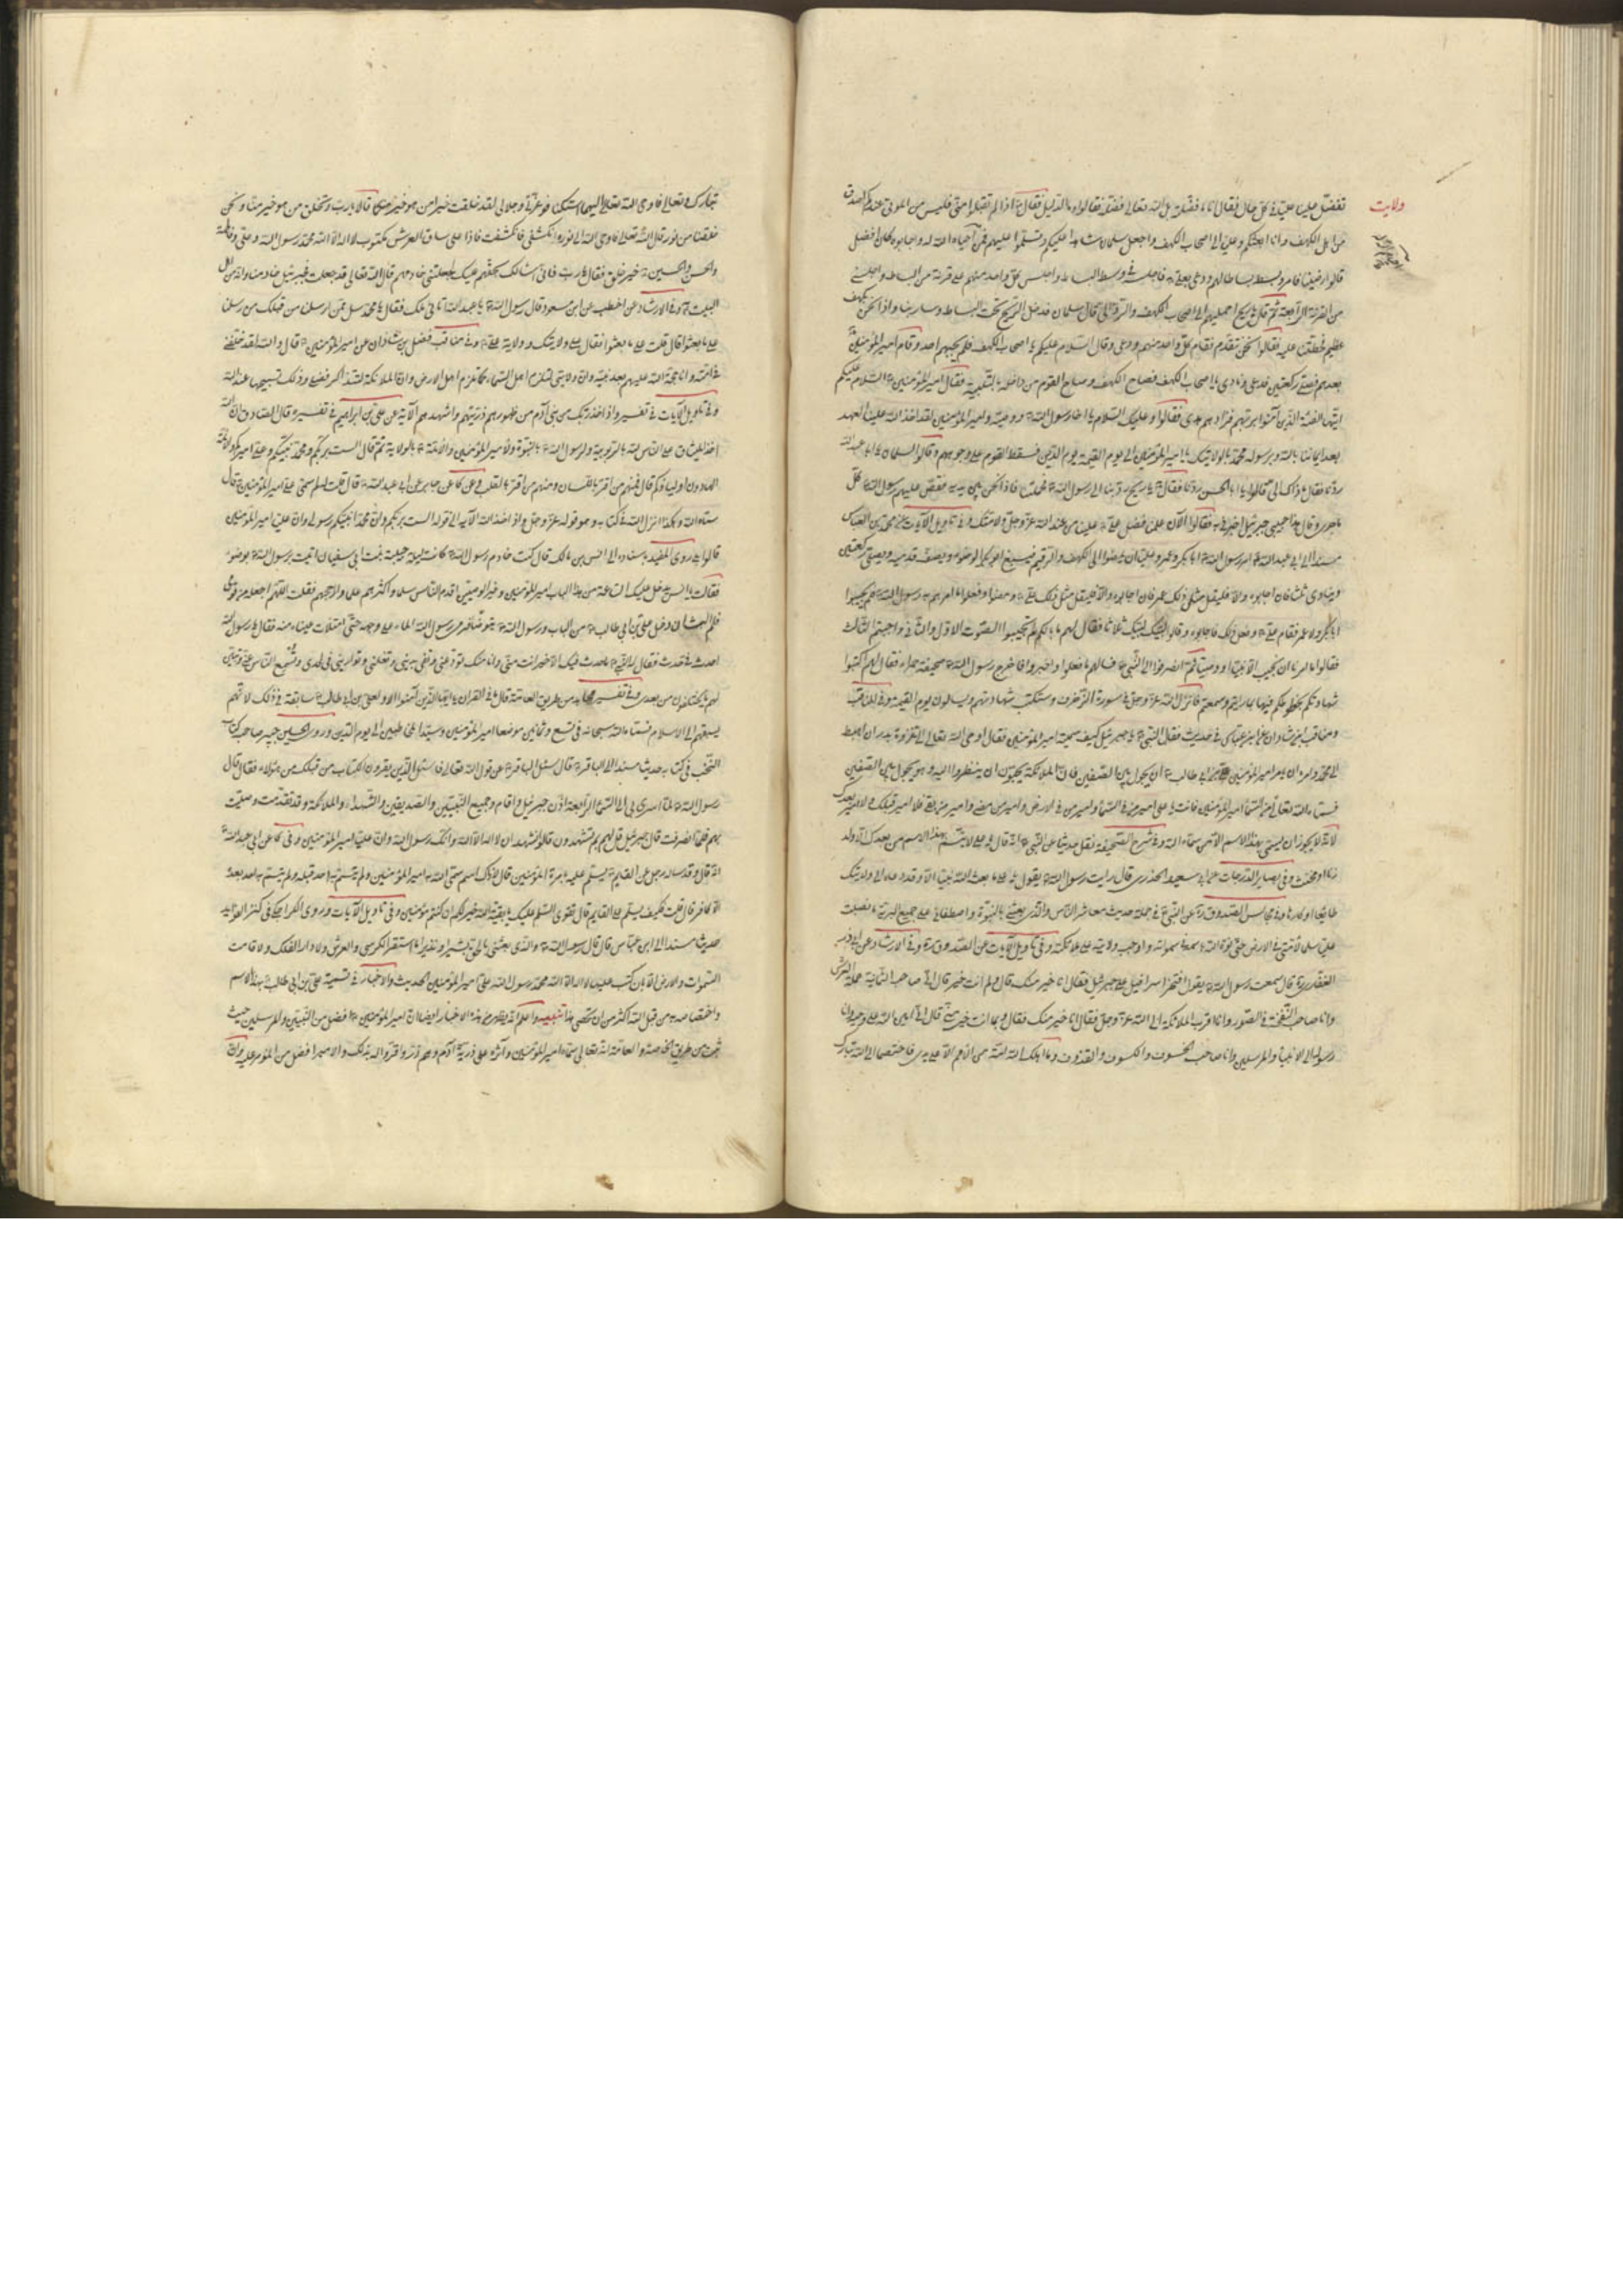 ولايت
تفضل علينا عليا في كل حال فقال انا ما فضلته بل الله تعالى فضله فقالوا وما الدليل فقال اذا لم تقبلوا مني فليس من الموتى عندكم اصدق
من اهل الكهف وانا ابعثكم وعليا الى اصحاب الكهف واجعل سلمان شاهدا عليكم وتسلموا عليهم فمن احياه الله له واجابوه كان افضل
قالوا رضينا فامر وبسط بساطا لهم ودعى بعلي فاجلسه في وسط البساط واجلس كل واحد منهم على قرنة من البساط واجلسني
من القرنة الرابعة ثم قال يا ريح احمليهم الى اصحاب الكهف وردّيهم الي قال سلمان فدخل الريح تحت البساط وسار بنا واذا نحن بكهف
عظيم فحطتنا عليه فقالوا نحن نتقدم فقام كل واحد منهم ودعى وقال السلام عليكم يا اصحاب الكهف فلم يجبهم احد وقام امير المؤمنين
بعدهم فصلى ركعتين فدعى ونادى يا اصحاب الكهف فصاح الكهف وصاح القوم من داخله بالتلبية فقال امير المؤمنين السلام عليكم
ايتها الفتية الذين آمنوا بربهم فزادهم هدى فقالوا وعليك السلام يا اخا رسول الله ووصيه وامير المؤمنين لقد اخذ الله علينا العهد
بعد ايماننا بالله وبرسوله محمد بالولاية لك يا امير المؤمنين الى يوم القيمة يوم الدين فسقط القوم على وجوههم وقالوا لسلمان يا ابا عبد الله
ردنا فقال ما ذاك الي قالوا يا ابا الحسن ردنا فقال يا ريح ردينا الى رسول الله فحملتنا فاذا نحن بين يديه فقص عليهم رسول الله كل
ما جرى وقال هذا حبيبي جبرئيل اخبرني به فقالوا الآن علمنا فضل علي علينا من عند الله عز وجل لا منك وفي تاويل الآيات عن محمد بن العباس
مسندا الى ابي عبد الله امر رسول الله ابا بكر وعمر وعليا ان يمضوا الى الكهف والرقيم فيسبغ ابو بكر الوضوء ويصف قدميه ويصلي ركعتين
وينادي ثلثا فان اجابوه والا فليقل مثل ذلك عمر فان اجابوه والا فليقل مثل ذلك علي ومضوا وفعلوا ما امرهم به رسول الله فلم يجيبوا
ابا بكر ولا عمر فقام علي وفعل ذلك فاجابوه وقالوا لبيك لبيك ثلاثا فقال لهم ما لكم لم تجيبوا الصوت الاول والثاني واجبتم الثالث
فقالوا انا امرنا ان لا نجيب الا نبيا او وصيا ثم انصرفوا الى النبي فسالهم ما فعلوا واخبروا فاخرج رسول الله صحيفة حمراء فقال لهم اكتبوا
شهادتكم بخطوطكم فيها بما رايتم وسمعتم فانزل الله عز وجل في سورة الزخرف ستكتب شهادتهم ويسالون يوم القيمة وفي المناقب
ومناقب ابن شاذان عن ابن عباس في حديث فقال النبي يا جبرئيل كيف سميته امير المؤمنين فقال اوحى الله تعالى الي في غزوة بدر ان اهبط
الى محمد وامره ان يامر امير المؤمنين علي بن ابي طالب ان يجول بين الصفين فان الملائكة يحبون ان ينظروا اليه وهو يجول بين الصفين
فسماه الله تعالى من السماء امير المؤمنين فانت يا علي امير من في السماء وامير من في الارض وامير من مضى وامير من بقى فلا امير قبلك ولا امير بعدك
لانه لا يجوز ان يسمى بهذا الاسم الا من سماه الله وفي شرح الصحيفة نقل حديثا عن النبي انه قال يا علي لا يتسم بهذا الاسم من بعدك الا ولد
زنا او مخنث وفي بصاير الدرجات عن ابي سعيد الخدري قال رايت رسول الله يقول يا علي ما بعث الله نبيا الا وقد دعاه الى ولايتك
طايعا او كارها وفي مجالس الصدوق ره عن النبي في جملة حديث معاشر الناس والذي بعثني بالنبوة واصطفاني على جميع البرية ما نصبت
عليا علما لامتي في الارض حتى نوه الله باسمه في سمواته واوجب ولايته على ملائكته وفي تاويل الآيات عن الصدوق ره وفي الارشاد عن ابي ذر
الغفاري قال سمعت رسول الله يقول افتخر اسرافيل على جبرئيل فقال انا خير منك قال ولم انت خير قال لاني صاحب الثمانية حملة العرش
وانا صاحب النفخة في الصور وانا اقرب الملائكة الى الله عز وجل فقال انا خير منك فقال وبما انت خير مني قال لاني امين الله على وحيه وان
رسوله الى الانبياء والمرسلين وانا صاحب الخسوف والكسوف والقذوف وما اهلك الله امة من الامم الا على يدي فاختصما الى الله تبارك
تبارك وتعالى فاوحى الله تعالى اليهما اسكتا فوعزتي وجلالي لقد خلقت خيرا من هو خير منكما قالا يا رب وتخلق من هو خير منا ونحن
خلقنا من نور قال الله تعالى نعم واوحى الله الى القدرة انكشفي فانكشفت فاذا على ساق العرش مكتوب لا اله الا الله محمد رسول الله وعلي وفاطمة
والحسن والحسين خير خلق فقال يا رب فاني اسالك بحقهم عليك الا جعلتني خادمهم قال الله تعالى قد جعلت فجبرئيل خادمنا وانه من اهل
البيت وفي الارشاد عن اخطب عن ابن مسعود قال رسول الله يا عبد الله اتاني ملك فقال يا محمد سل عمن ارسلنا من قبلك من رسلنا
على ما بعثوا قال قلت على ما بعثوا فقال على ولايتك وولاية علي وفي مناقب فضل بن شاذان عن امير المؤمنين قال والله لقد خلفني
في امته وانا حجة الله عليهم بعد نبيه وان ولايتي لتلزم اهل السماء كما تلزم اهل الارض وان الملائكة لتتذاكر فضلي وذلك تسبيحها عند الله
وفي تاويل الآيات في تفسير واذ اخذ ربك من بني آدم من ظهورهم ذريتهم واشهدهم الآية عن علي بن ابراهيم في تفسيره قال الصادق ان الله
اخذ الميثاق على الناس لله بالربوبية ولرسول الله بالنبوة ولامير المؤمنين والائمة بالولاية ثم قال الست بربكم ومحمد نبيكم وعلي اميركم والائمة
الهادون اولياؤكم فمنهم من اقر باللسان ومنهم من اقر بالقلب وفي عن كا عن جابر عن ابي عبد الله قال قلت لم سمي علي امير المؤمنين قال
سماه الله وهكذا انزل الله في كتابه وهو قوله عز وجل واذ اخذ الله الآية الى قوله الست بربكم وان محمدا نبيكم رسولي وان عليا امير المؤمنين
قالوا بلى روى المفيد باسناده الى انس بن مالك قال كنت خادم رسول الله كانت ليلة حبيبة بنت ابي سفيان اتيت برسول الله بوضوء
فقال يا انس يدخل عليك الساعة من هذا الباب امير المؤمنين وخير الوصيين اقدم الناس سلما واكثرهم علما وارجحهم فقلت اللهم اجعله من قومي
فلم البث ان دخل علي بن ابي طالب من الباب ورسول الله يتوضأ فرد رسول الله الماء على وجهه حتى امتلات عيناه منه فقال يا رسول الله
احدث في حدث فقال له النبي ما حدث فيك الا خير انت مني وانا منك تؤدي عني وتفي بذمتي وتغسلني وتواريني في لحدي وتسمع الناس عني وتبين
لهم ما يختلفون من بعدي وفي تفسير مجاهد من طريق العامة قال ما في القران يا ايها الذين آمنوا الا ولعلي بن ابي طالب سابقة في ذلك لانهم
يسبقهم الى الاسلام فسماه الله سبحانه في تسع وثمانين موضعا امير المؤمنين وسيد المخاطبين الى يوم الدين وروى الحسين جبير صاحب كتاب
النخب في كتابه حديثا مسندا الى الباقر قال سئل الباقر عن قول الله تعالى فاسئل الذين يقرؤن الكتاب من قبلك من هؤلاء فقال قال
رسول الله لما اسرى بي الى السماء الرابعة اذن جبرئيل واقام وجمع النبيين والصديقين والشهداء والملائكة وقد تقدمت وصليت
بهم فلما انصرفت قال جبرئيل قل لهم بم يشهدون قالوا نشهد ان لا اله الا الله وانك رسول الله وان عليا امير المؤمنين وفي كا عن ابي عبد الله
انه قال وقد ساله رجل عن القايم يسلم عليه بامرة المؤمنين قال لا ذاك اسم سمى الله به امير المؤمنين ولم يتسم به احد قبله ولم يتسم به احد بعده
الا كافر قال قلت فكيف يسلم على القايم قال تقول السلام عليك يا بقية الله خير لكم ان كنتم مؤمنين وفي تاويل الآيات وروى الكراجكي في كنز الفوايد
حديثا مسندا الى ابن عباس قال قال رسول الله والذي بعثني بالحق بشيرا ونذيرا ما استقر الكرسي والعرش ولا دار الفلك ولا قامت
السموات والارض الا بان كتب عليها لا اله الا الله محمد رسول الله علي امير المؤمنين الحديث والاخبار في تسمية علي بن ابي طالب بهذا الاسم
واختصاصه من قبل الله اكثر من ان تحصى هنا تنبيه واعلم انه يظهر من هذه الاخبار ايضا ان امير المؤمنين افضل من النبيين والمرسلين حيث
ثبت من طريق الخاصة والعامة ان الله تعالى سماه امير المؤمنين وامّره على ذرية آدم وهم ذر واقروا له بذلك والامير افضل من المؤمر عليه وان